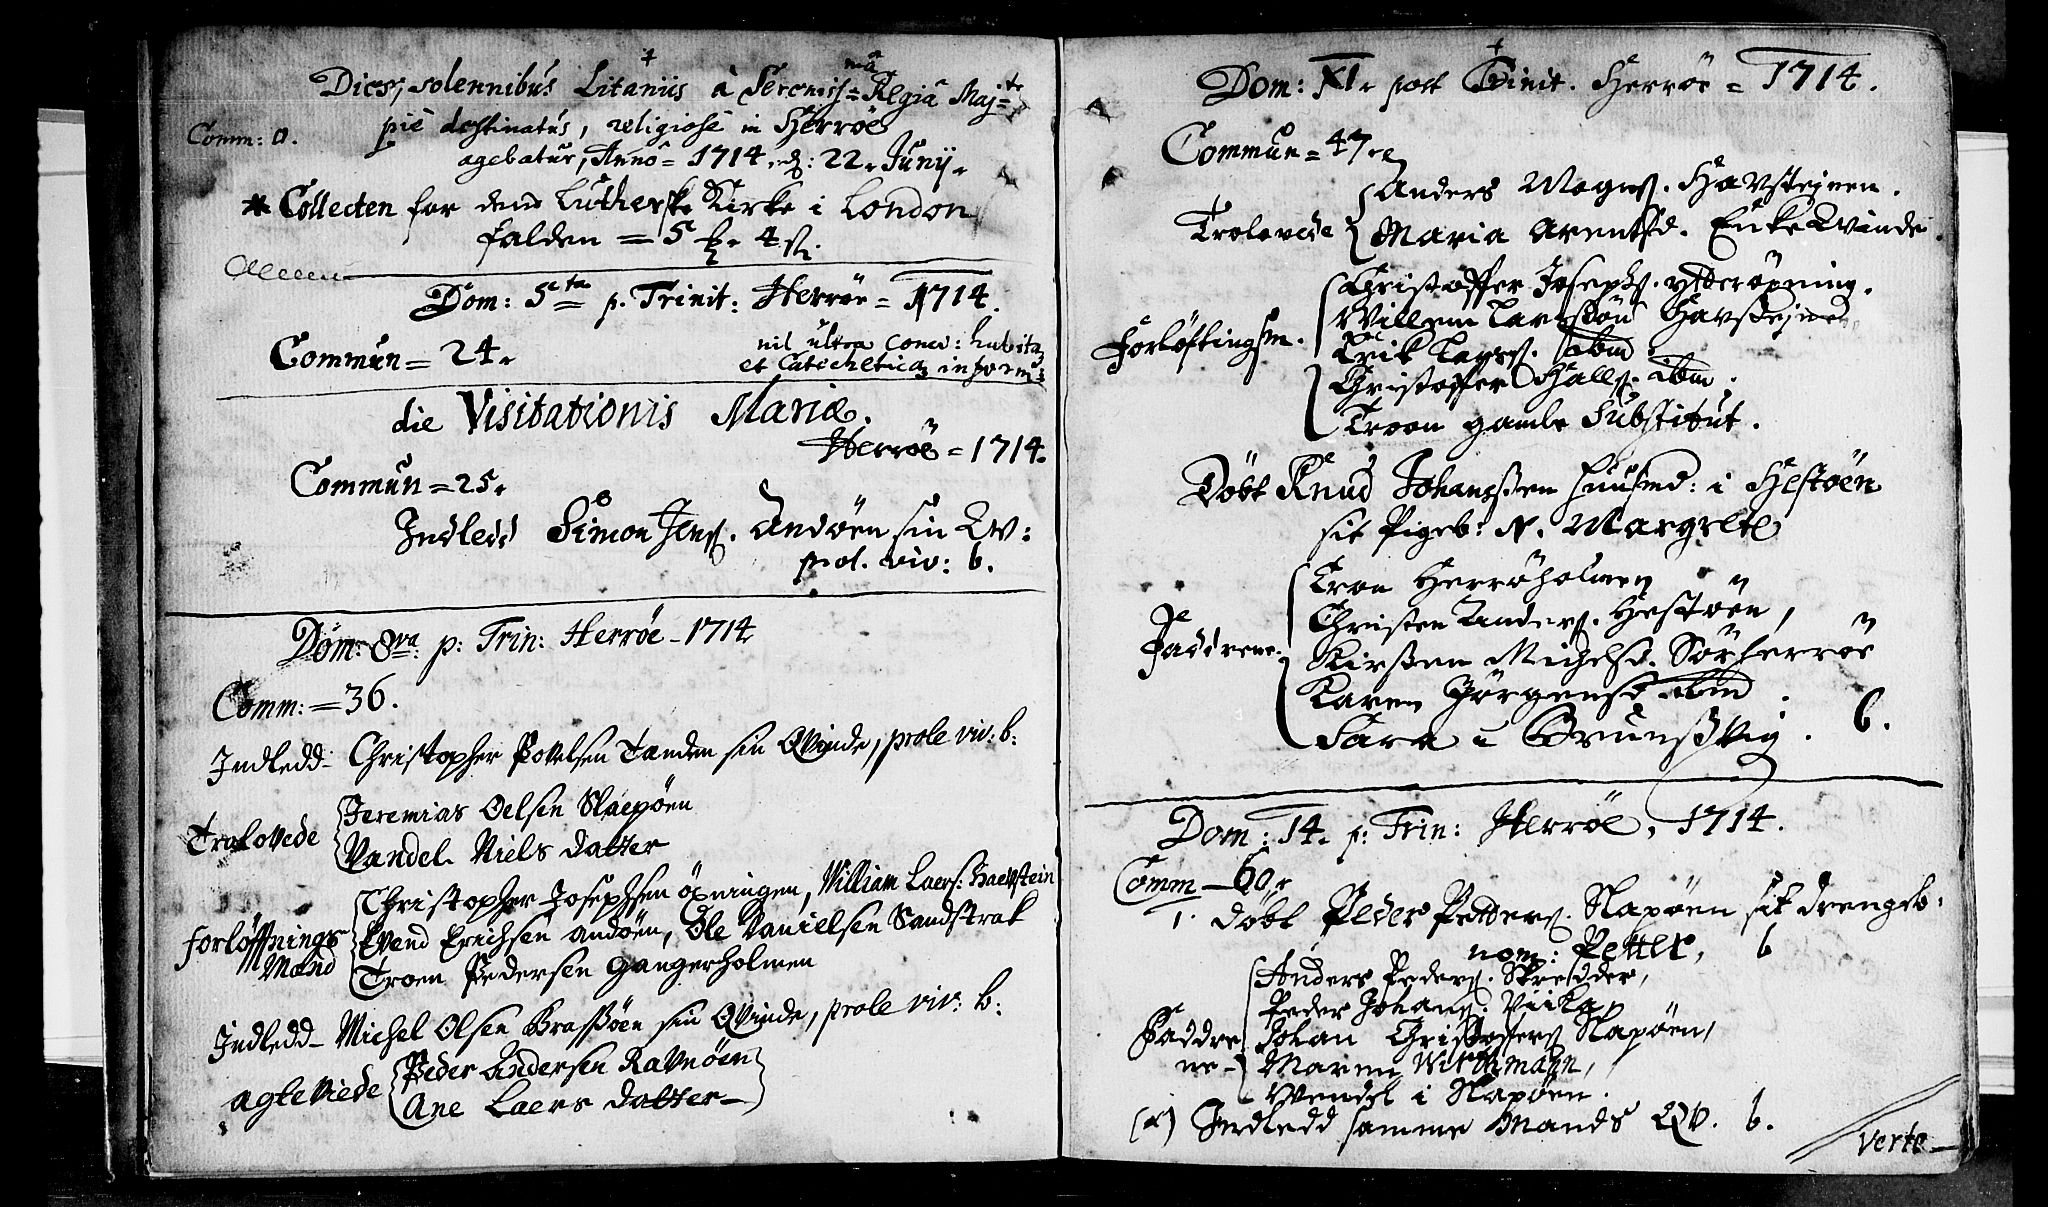 Dies, solennibus Litaniis à Sereniss=mâ Regiâ Maj=te
Comm: 0.
pie destinatus, religiose in Herröe
agebatur, Anno = 1714. d: 22. Junij.
* Collecten for den Lutherske Kirke i London
falden = 5 4
Dom: 5ta p. Trinit: Herröe = 1714.
Commun = 24.
nil ultra conc: habita
et Catechetica inform:
die Visitationis Mariæ.
Herröe = 1714.
Commun = 25.
Indledd Simon Jens. Andöen sin Qv:
prol. viv: b.
Dom: 8va: p: Trin: Herröe - 1714
Comm: = 36.
Indledd - Christopher Povelsen Tanden sin Qvinde, prole viv: b:
Trolovede
Jeremias Oelsen Slaepöen
Vandel Niels datter
forlöffnings Mænd
Christopher Josephsen öxningen, William Laers: Haevstein
Evend Erichsen andöen, Ole Danielsen Sandstrak
Troen Pedersen Gangerholmen
Indledd - Michel Olsen Brassöen sin Qvinde, prole viv: b:
agteviede
Peder Andersen Ravnöen
Ane Laers datter -
Dom: XI. post Trinit. Herröe = 1714.
Commun = 47.
Trolovede
Anders Mogns. Havsteinen.
Maria Arentsd. Enke Qvinde.
Forlöftingsm.
Christoffer Joseps. ytteröxning.
Willem Larssön Havsteinen
Erik Lars. ibm.
Christoffer Halls. ibm.
Troen gamle Substitut.
Döbt Knud Johanssen huusmd: i Hestöen
sit Pigeb: N. Margrete
Faddrene.
Tron Herröholmen
Christen Anders. Hestöen,
Kirsten Michelsd. Sörherröe
Karen Jörgensd ibm.
Sara i Bruunsvig. b.
Dom: 14. p: Trin: Herröe, 1714.
Comm - 60.
1. döbt Peder Petters. Slapöen sit drengeb:
nom: Petter, b
Faddrene -
Anders Peders. Skredder,
Peder Johans. Viika,
Johan Christoffers Slapöen,
Maren Withmann,
Wendel i Slapöen.
Indledd samme Mands Qv. b.
Verte -